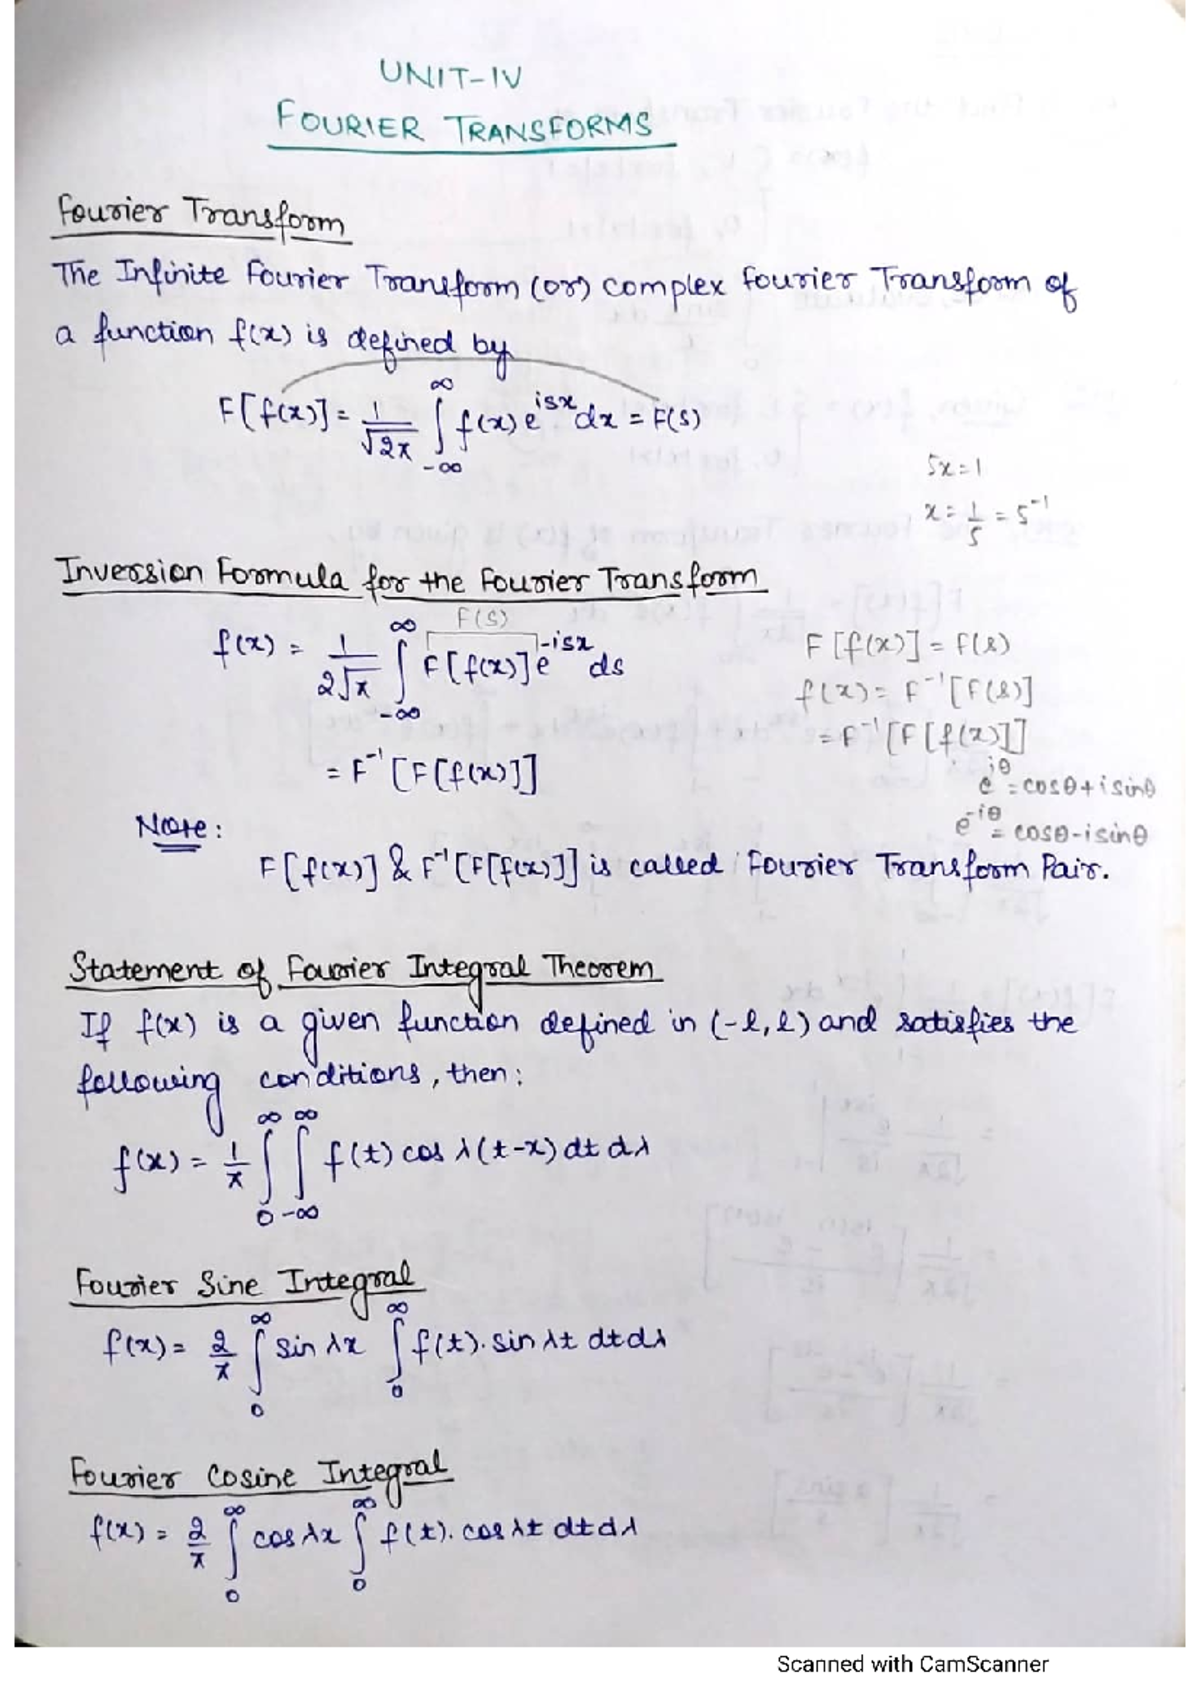 UNIT-IV
FOURIER TRANSFORMS
Fourier Transform
The Infinite Fourier Transform (or) complex Fourier Transform of
a function f(x) is defined by
F[f(x)] = 1/√2π ∫_{-∞}^{∞} f(x) e^{isx} dx = F(s)
5x = 1
x = 1/5 = 5^{-1}
Inversion Formula for the Fourier Transform
F(S)
f(x) = 1/2√π ∫_{-∞}^{∞} F[f(x)] e^{-isx} ds
F[f(x)] = F(s)
f(x) = F^{-1}[F(s)]
= F^{-1}[F[f(x)]]
= F^{-1}[F[f(x)]]
e^{iθ} = cosθ + i sinθ
e^{-iθ} = cosθ - i sinθ
Note:
F[f(x)] & F^{-1}[F[f(x)]] is called Fourier Transform Pair.
Statement of Fourier Integral Theorem
If f(x) is a given function defined in (-l, l) and satisfies the
following conditions, then:
f(x) = 1/π ∫_{0}^{∞} ∫_{-∞}^{∞} f(t) cos λ(t-x) dt dλ
Fourier Sine Integral
f(x) = 2/π ∫_{0}^{∞} sin λx ∫_{0}^{∞} f(t). sin λt dt dλ
Fourier Cosine Integral
f(x) = 2/π ∫_{0}^{∞} cos λx ∫_{0}^{∞} f(t). cos λt dt dλ
Scanned with CamScanner